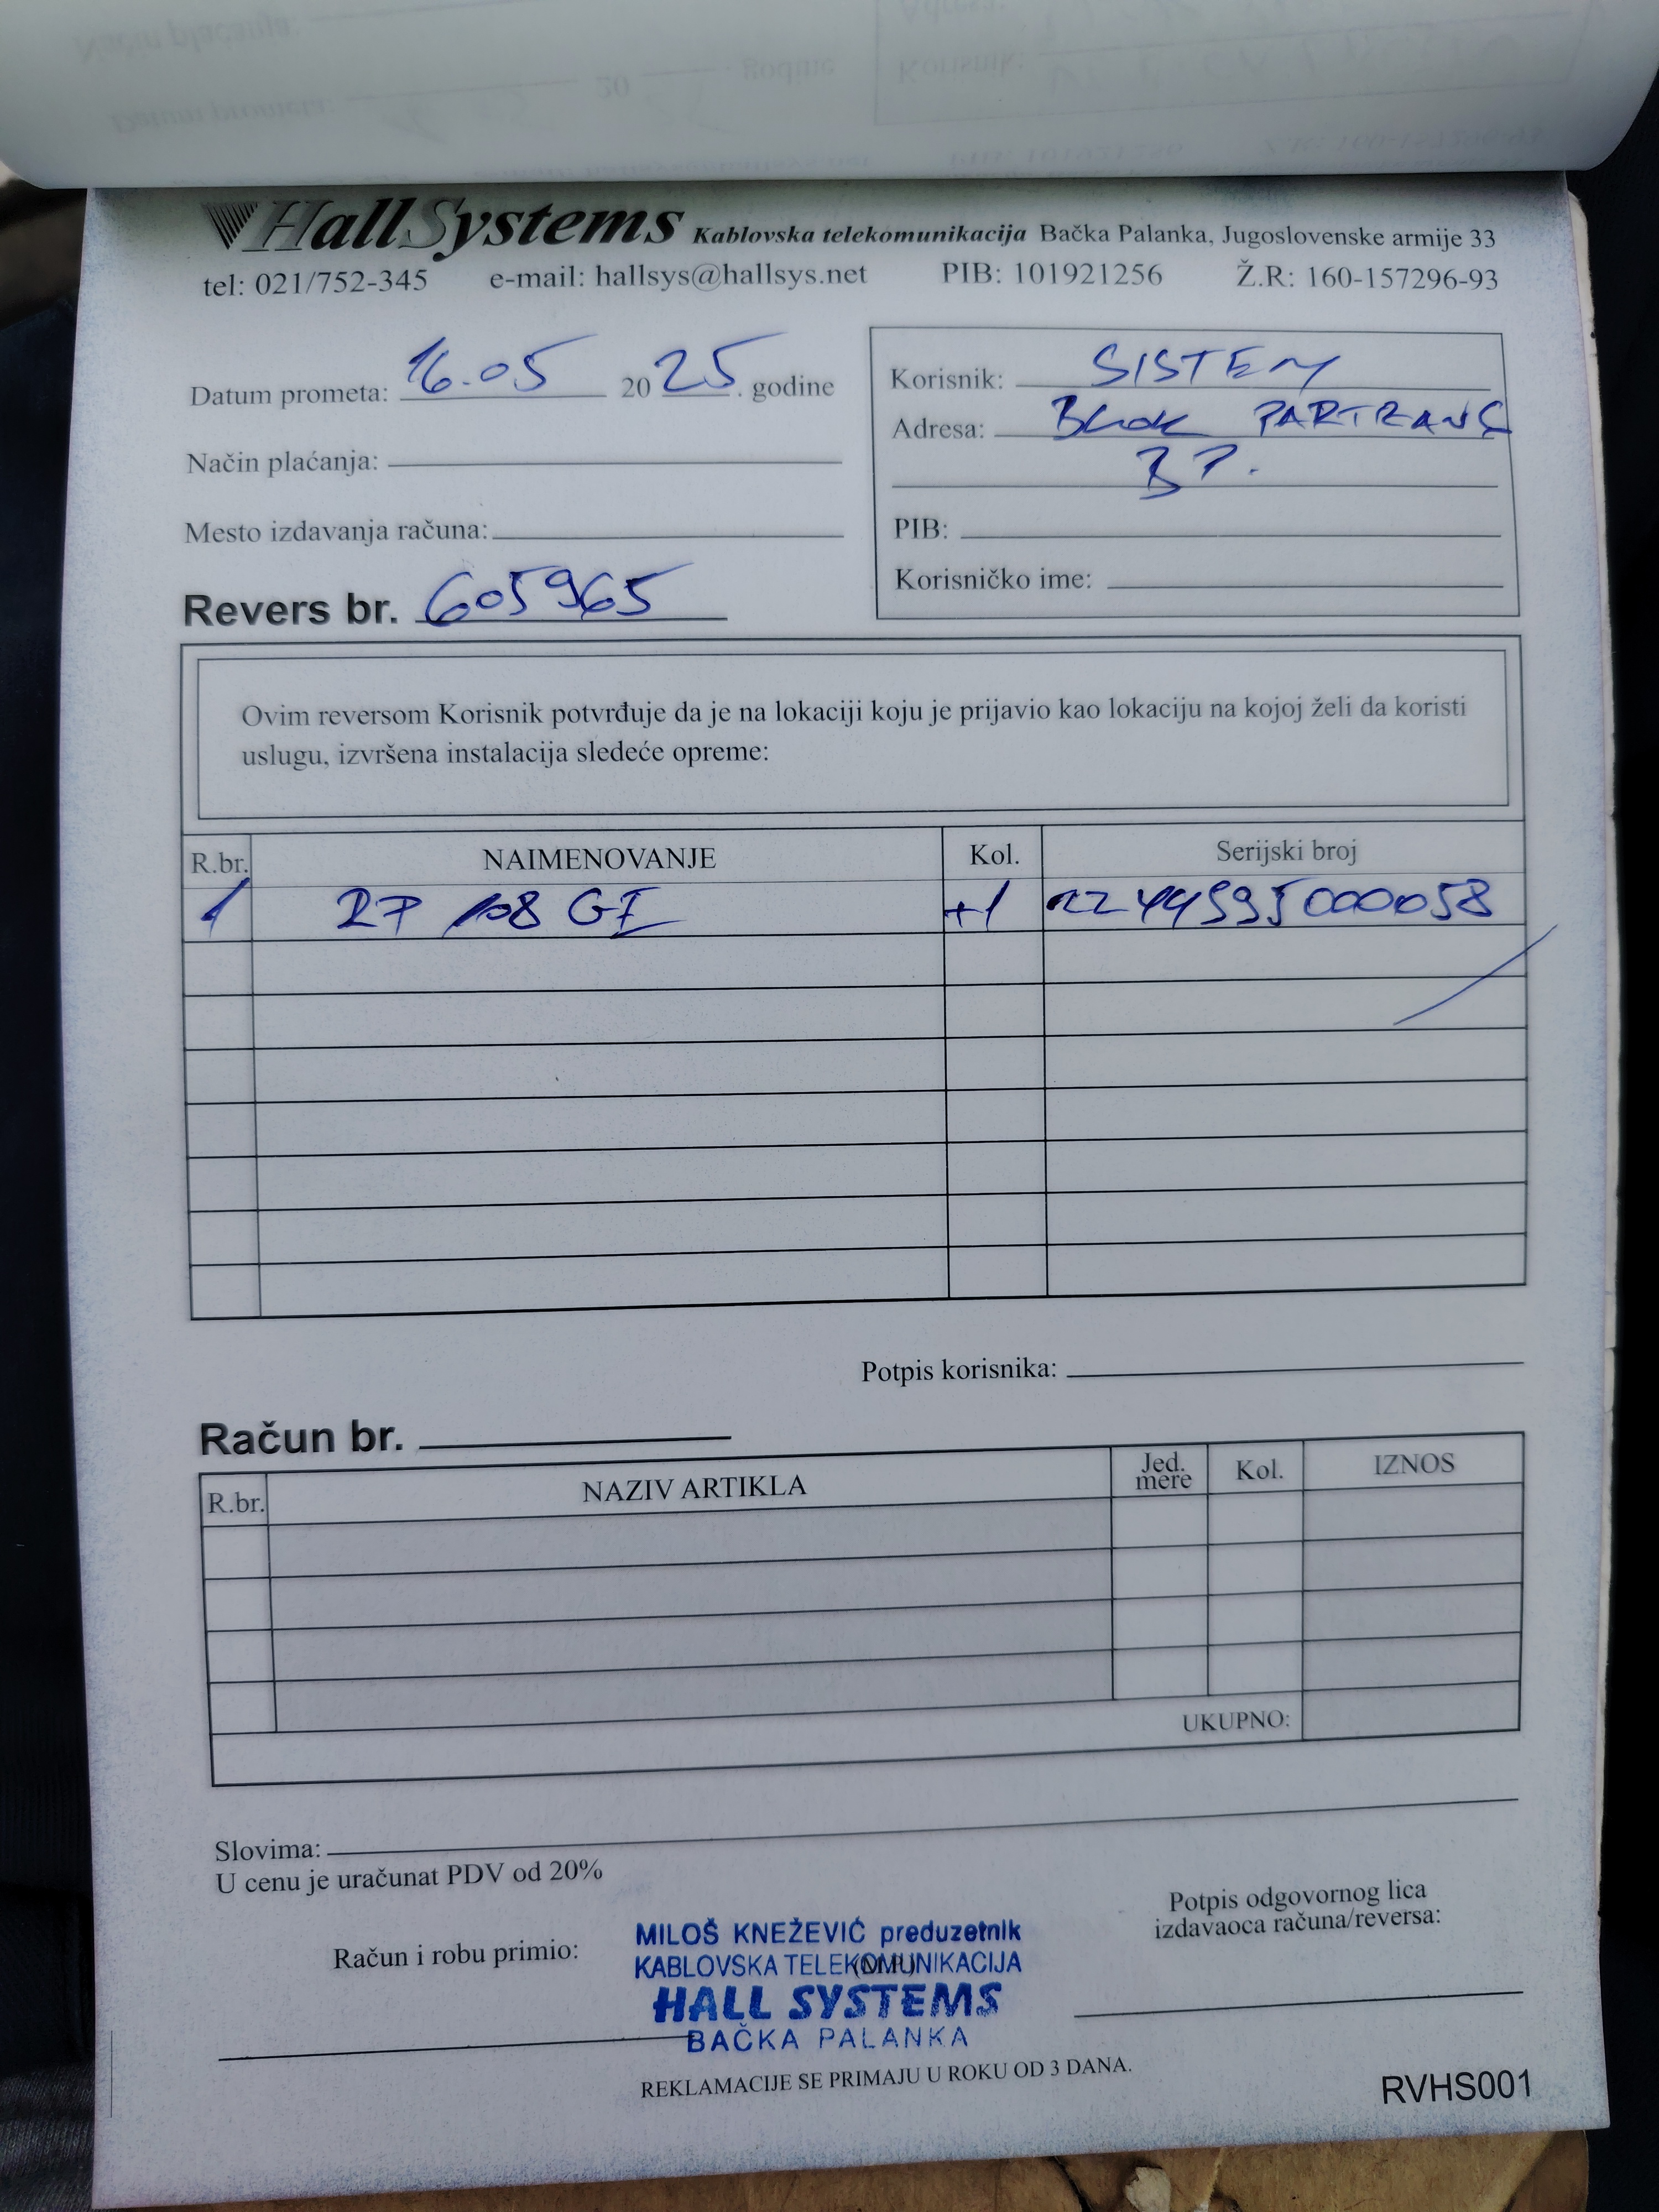 HallSystems Kablovska telekomunikacija Bačka Palanka, Jugoslovenske armije 33
tel: 021/752-345 e-mail: hallsys@hallsys.net PIB: 101921256 Ž.R: 160-157296-93
Datum prometa: 16.05 2025. godine
Način plaćanja:
Mesto izdavanja računa:
Revers br. 605965
Korisnik: SISTEM
Adresa: Blok PARTRANS
BP.
PIB:
Korisničko ime:
Ovim reversom Korisnik potvrđuje da je na lokaciji koju je prijavio kao lokaciju na kojoj želi da koristi
uslugu, izvršena instalacija sledeće opreme:
R.br. NAIMENOVANJE Kol. Serijski broj
1 108 GE +1
Potpis korisnika:
Račun br.
R.br. NAZIV ARTIKLA Jed. mere Kol. IZNOS
UKUPNO:
Slovima:
U cenu je uračunat PDV od 20%
Račun i robu primio:
MILOŠ KNEŽEVIĆ preduzetnik
KABLOVSKA TELEKOMUNIKACIJA
(M.P.)
HALL SYSTEMS
BAČKA PALANKA
Potpis odgovornog lica
izdavaoca računa/reversa:
REKLAMACIJE SE PRIMAJU U ROKU OD 3 DANA.
RVHS001